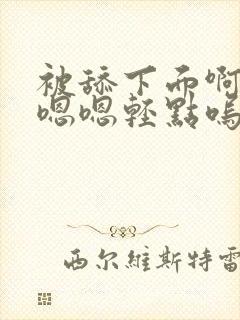 被舔下面啊
嗯嗯轻點嗚
西尔維斯特雷